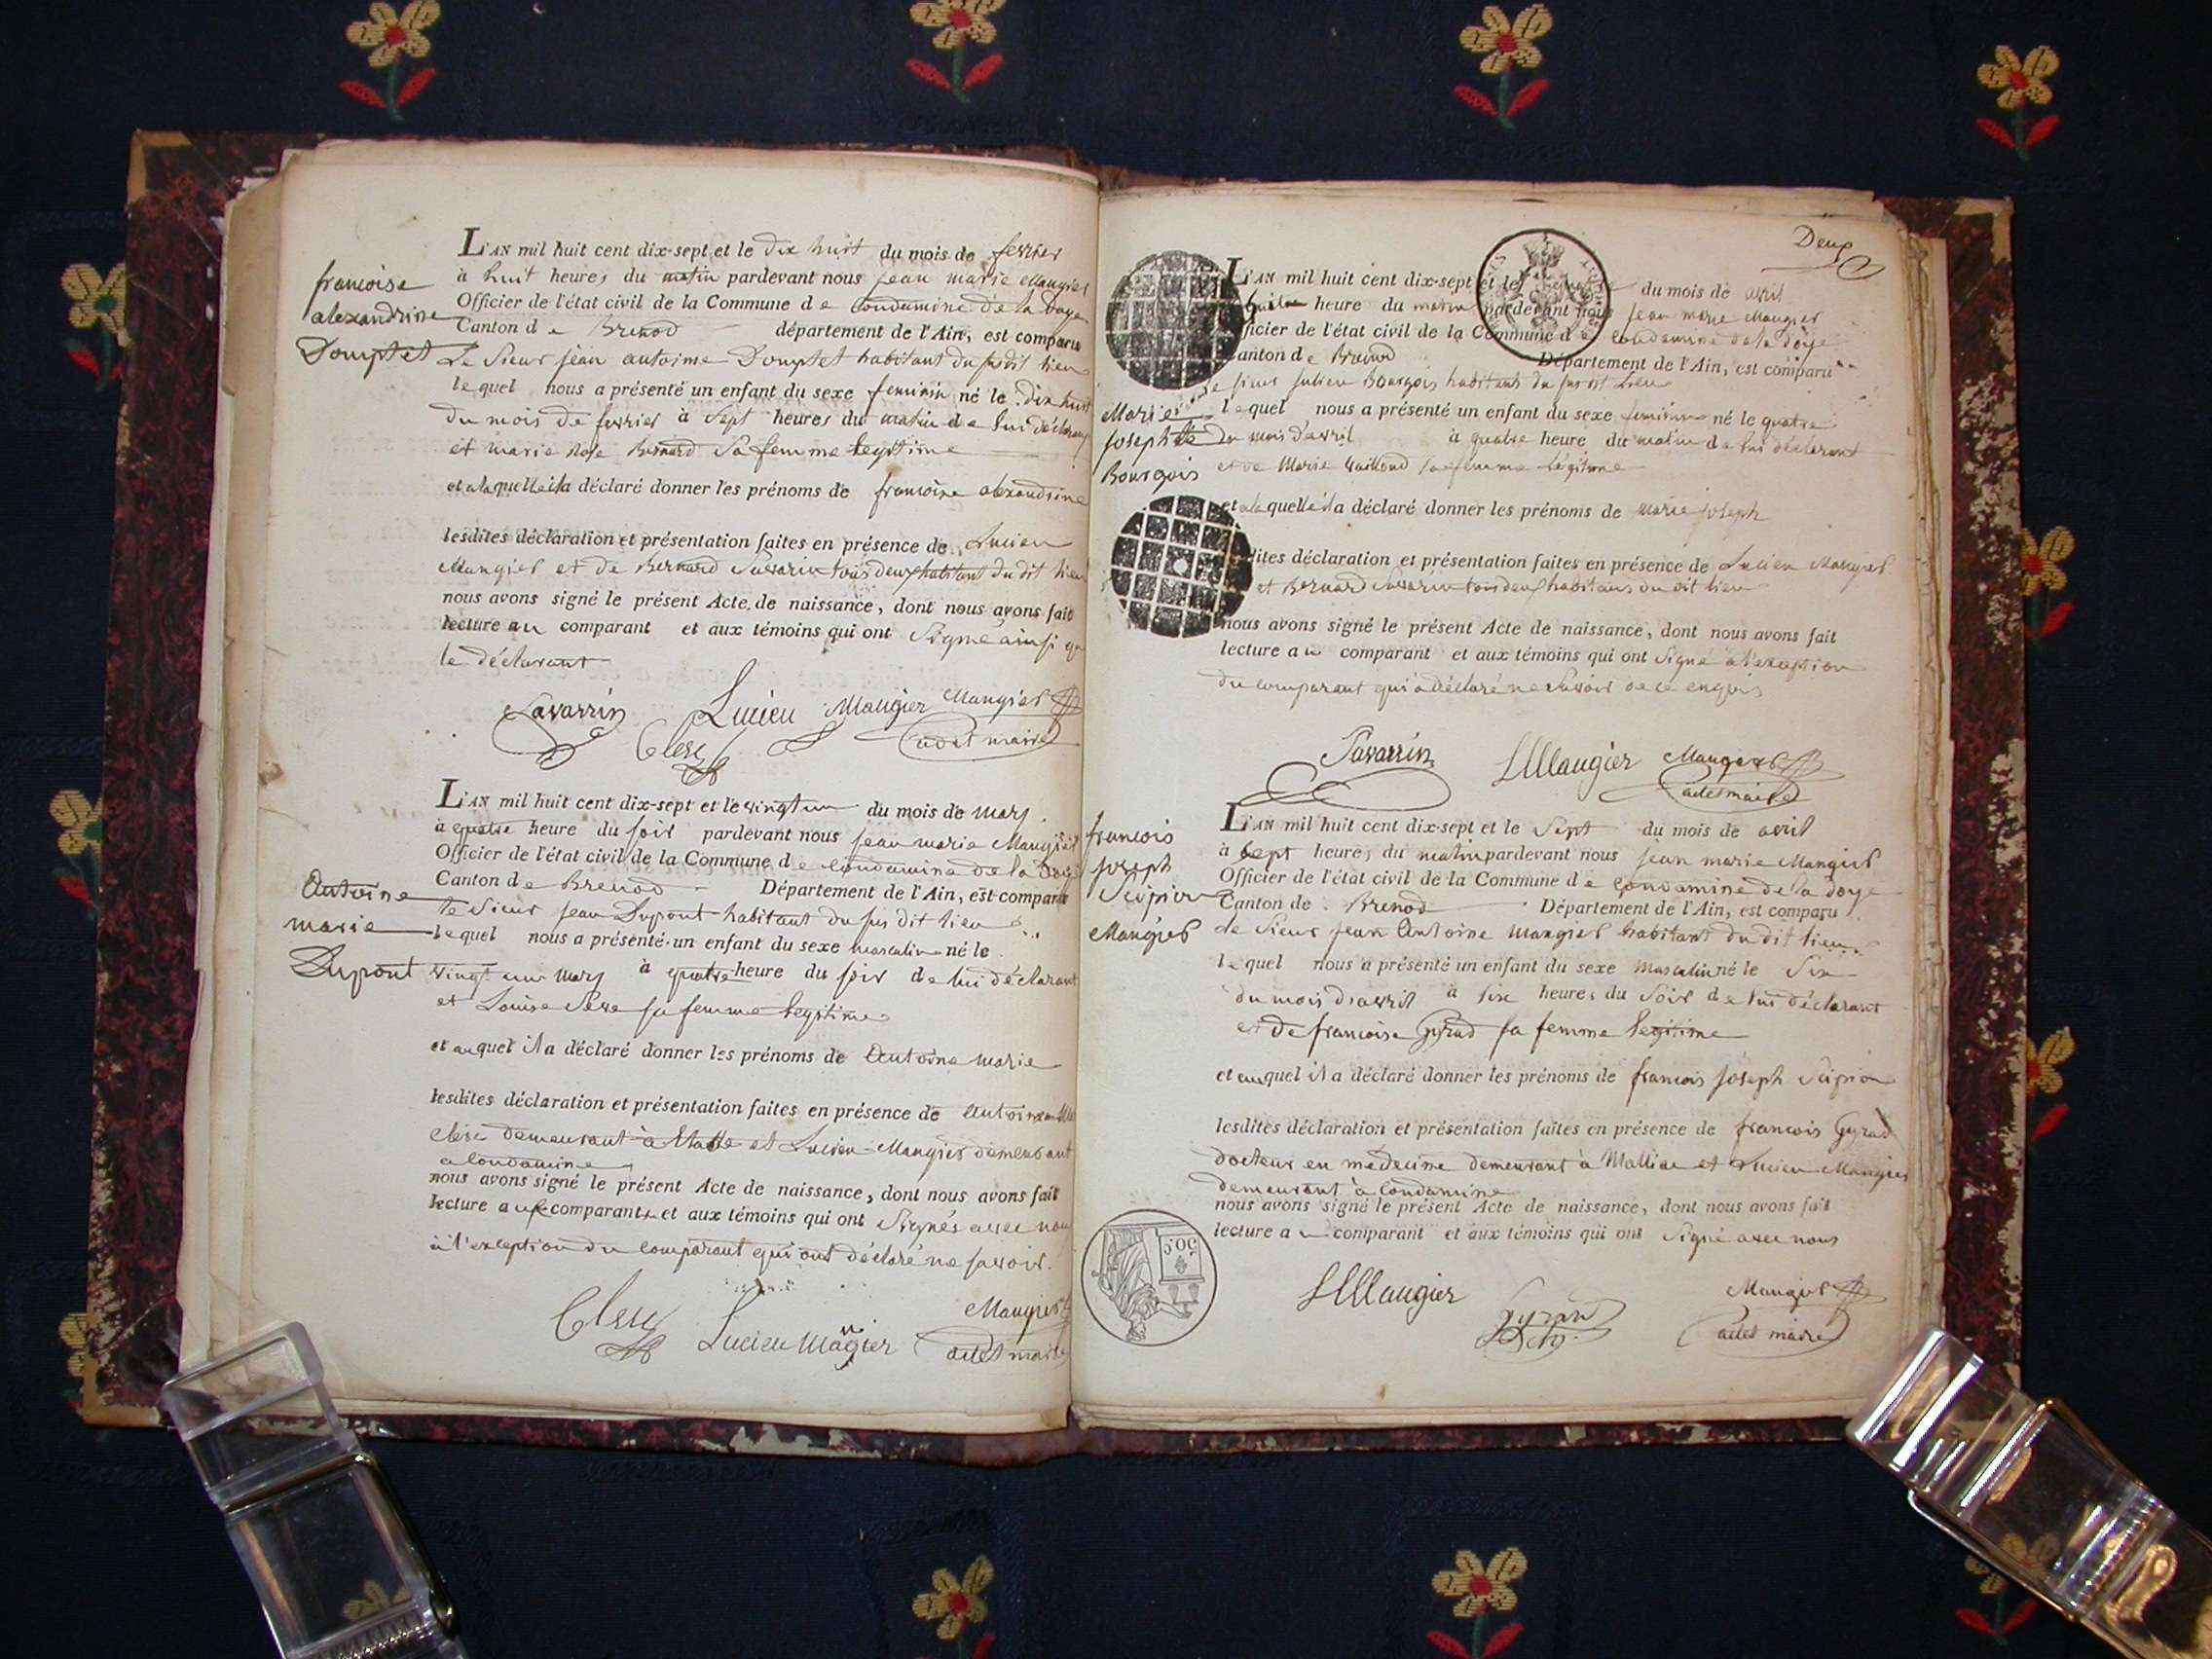 françoise
alexandrine
Douptet
L'AN mil huit cent dix-sept et le dix huit du mois de fevrier
à huit heures du matin pardevant nous jean marie Maugier
Officier de l'état civil de la Commune de Condamine de la Doye
Canton de Brenod département de l'Ain, est comparu
Le Sieur jean antoine Douptet habitant du susdit lieu
lequel nous a présenté un enfant du sexe feminin né le dix huit
du mois de fevrier à Sept heures du matin de lui déclarant
et marie Rose Bernard Sa femme legitime
et a laquelle il a déclaré donner les prénoms de françoise alexandrine
lesdites déclaration et présentation faites en présence de Lucien
Maugier et de Bernard Savarin tous deux habitant du dit lieu
nous avons signé le présent Acte de naissance, dont nous avons fait
lecture au comparant et aux témoins qui ont Signé ainsi que
le déclarant
Savarrin Lucien Maugier Maugier
Clerc adet maire
Antoine
marie
Dupont
L'AN mil huit cent dix-sept et le vingt un du mois de mars
à quatre heure du soir pardevant nous jean marie Maugier
Officier de l'état civil de la Commune de Condamine de la Doye
Canton de Brenod Département de l'Ain, est comparu
le Sieur jean Dupont habitant du sus dit lieu
lequel nous a présenté un enfant du sexe masculin né le
vingt un mars à quatre heure du soir de lui déclarant
et Louise sa femme legitime
et auquel il a déclaré donner les prénoms de Antoine marie
lesdites déclaration et présentation faites en présence de Antoine
Clerc demeurant à et Lucien Maugier demeurant
a Condamine
nous avons signé le présent Acte de naissance, dont nous avons fait
lecture au comparant et aux témoins qui ont Signés avec nous
à l'exception du Comparant qui ont déclaré ne savoir.
Clerc Lucien Maugier Maugier
adet maire
Deux
Marie
joseph
Bourgois
L'AN mil huit cent dix-sept et le du mois de avril
heure du matin pardevant nous jean marie Maugier
Officier de l'état civil de la Commune de Condamine de la Doye
Canton de Brenod Département de l'Ain, est comparu
Le sieur julien Bourgois habitant du susdit Lieu
lequel nous a présenté un enfant du sexe feminin né le quatre
du mois d'avril à quatre heure du matin de lui déclarant
et de Marie sa femme Légitime
et a laquelle il a déclaré donner les prénoms de marie joseph
lesdites déclaration et présentation faites en présence de Lucien Maugier
et Bernard Savarin tous deux habitans du dit lieu
nous avons signé le présent Acte de naissance, dont nous avons fait
lecture au comparant et aux témoins qui ont Signé à l'exception
du comparant qui a déclaré ne savoir de ce enquis
Savarrin LMaugier Maugier
adet maire
francois
joseph
Scipion
Maugier
L'AN mil huit cent dix-sept et le Sept du mois de avril
à Sept heures du matin pardevant nous jean marie Maugier
Officier de l'état civil de la Commune de Condamine de la Doye
Canton de Brenod Département de l'Ain, est comparu
Le Sieur jean Antoine Maugier habitant du dit lieu
lequel nous a présenté un enfant du sexe masculin né le Six
du mois d'avril à six heures du Soir de lui déclarant
et de francoise Gyrad sa femme legitime
et auquel il a déclaré donner les prénoms de francois joseph Scipion
lesdites déclaration et présentation faites en présence de francois Gyrad
docteur en médecine demeurant à Malliac et Lucien Maugier
demeurant à Condamine
nous avons signé le présent Acte de naissance, dont nous avons fait
lecture au comparant et aux témoins qui ont Signé avec nous
50c
LMaugier Maugier
adet maire